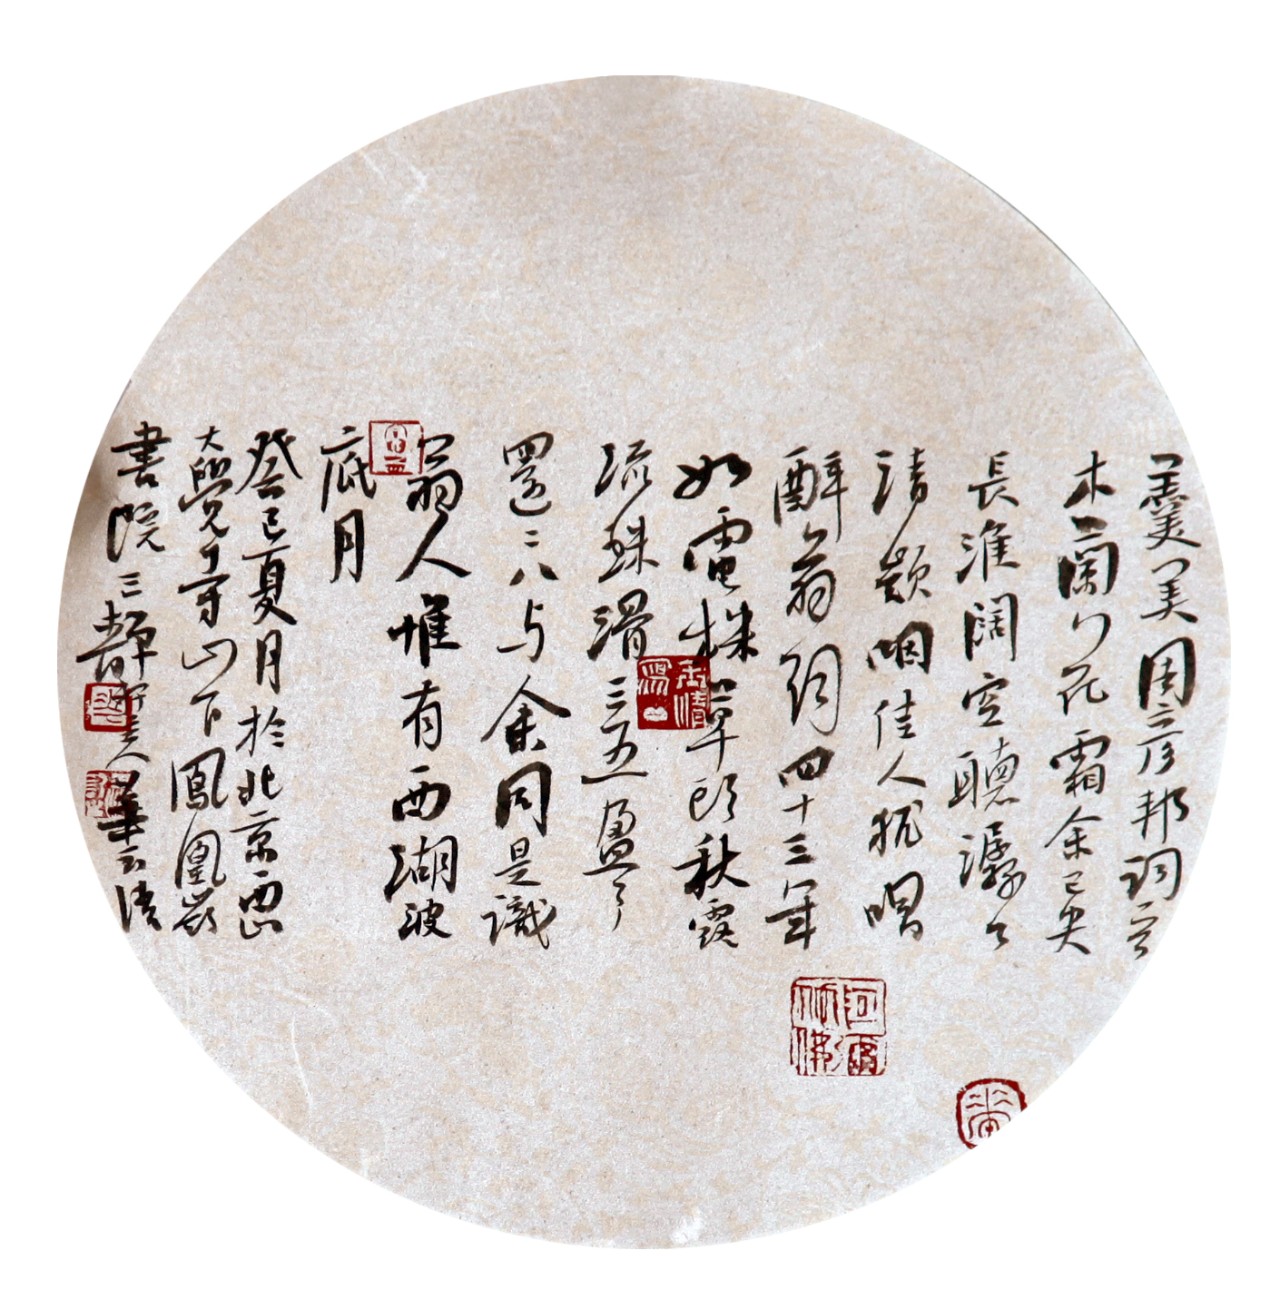 周彦邦詞
木蘭花霜余已失
長淮闊空聽潺々
清颖咽佳人犹唱
醉翁詞四十三年
如電抹草頭秋露
流珠滑三五盈々
還二八与余同是識
翁人惟有西湖波
底月
癸巳夏月於北京西山
大覺寺山下鳳凰嶺
書院三靜主人華云